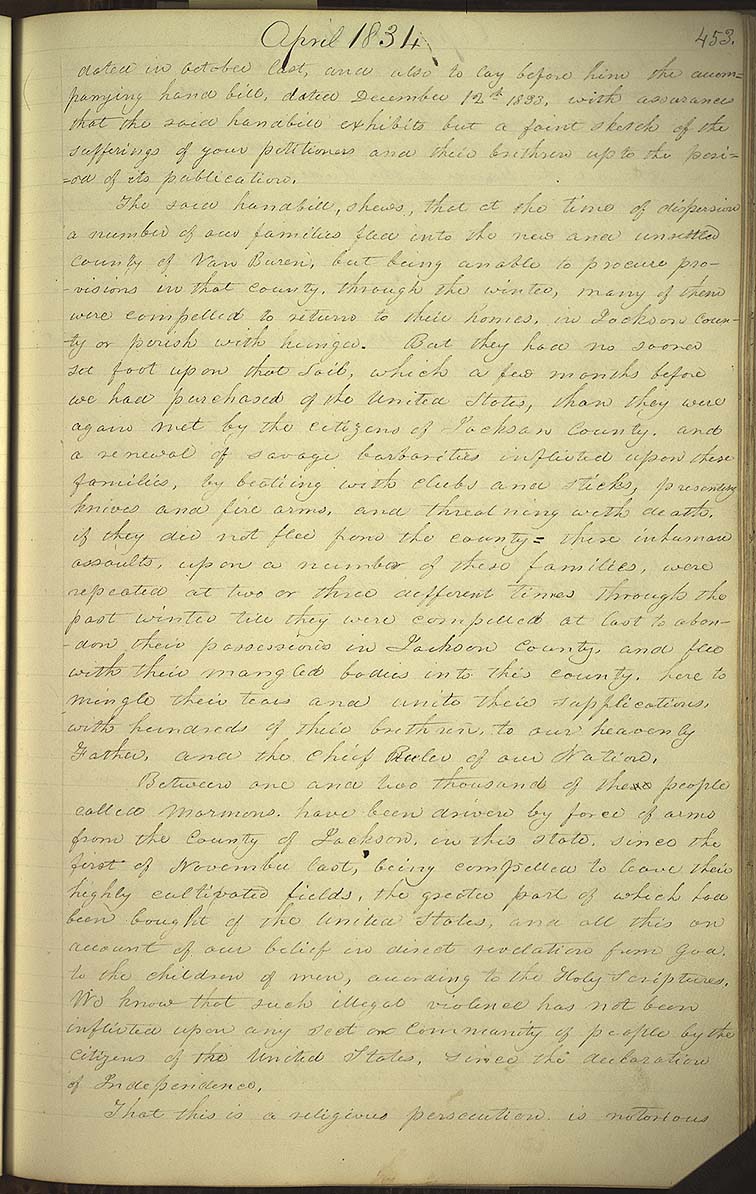 April 1834
453.
dated in october last, and also to lay before him the accom=
panying hand bill, dated December 12th 1833, with assurances
that the said handbill exhibits but a faint sketch of the
sufferings of your petitioners and their brethren up to the peri=
=od of its publication.
The said handbill, shews, that at the time of dispersion
a number of our families fled into the new and unsettled
county of Van Buren, but being unable to procure pro-
-visions in that county, through the winter, many of them
were compelled to return to their homes, in Jackson coun-
-ty or perish with hunger. But they had no sooner
set foot upon that soil, which a few months before
we had purchased of the United States, than they were
again met by the citizens of Jackson County. and
a renewal of savage barbarities inflicted upon these
families, by beating with clubs and sticks, presenting
knives and fire arms, and threatning with death,
if they did not flee from the county= these inhuman
assaults, upon a number of these families, were
repeated at two or three different times through the
past winter till they were compelled at last to aban-
-don their possessions in Jackson County, and flee
with their mangled bodies into this county. here to
mingle their tears and unite their supplications,
with hundreds of their brethren, to our heavenly
Father, and the chief Ruler of our Nation.
Between one and two thousand of the people
called Mormons. have been driven by force of arms
from the County of Jackson, in this state. since the
first of November last, being compelled to leave their
highly cultivated fields, the greater part of which had
been bought of the United States, and all this on
account of our belief in direct revelation from God.
to the children of men, according to the Holy Scriptures.
We know that such illegal violence has not been
inflicted upon any sect or community of people by the
citizens of the United States, since the declaration
of Independence,
That this is a religious persecution. is notorious